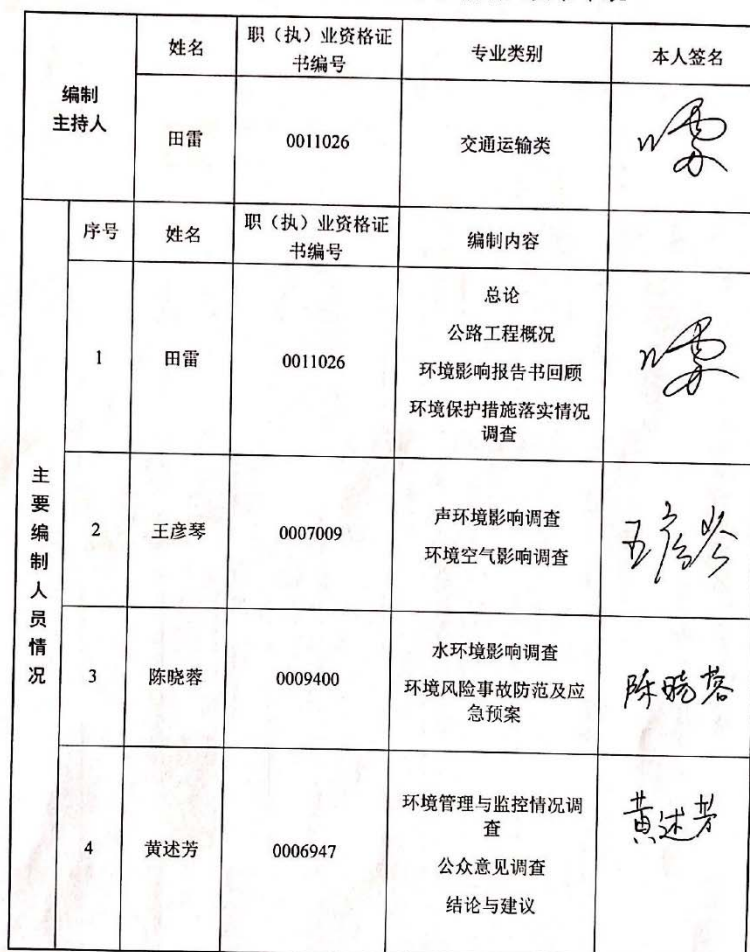 姓名
职（执）业资格证
书编号
专业类别
本人签名
编制
主持人
田雷
0011026
交通运输类
序号
姓名
职（执）业资格证
书编号
编制内容
1
田雷
0011026
总论
公路工程概况
环境影响报告书回顾
环境保护措施落实情况
调查
主要编制人员情况
2
王彦琴
0007009
声环境影响调查
环境空气影响调查
王彦琴
3
陈晓蓉
0009400
水环境影响调查
环境风险事故防范及应
急预案
陈晓蓉
4
黄述芳
0006947
环境管理与监控情况调
查
公众意见调查
结论与建议
黄述芳